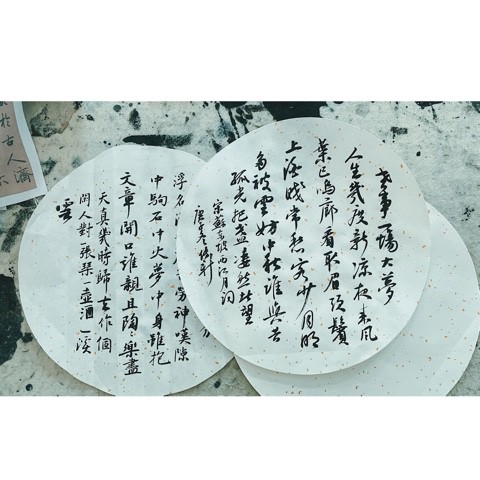 世事一場大夢
人生幾度新涼夜來風
葉已鳴廊看取眉頭鬢
上酒賤常愁客少月明
多被雲妨中秋誰與共
孤光把盞凄然北望
宋蘇東坡西江月詞
浮名
勞神嘆隙
中駒石中火夢中身雖抱
文章開口誰親且陶々樂盡
天真幾時歸去作個
閑人對一張琴一壺酒一溪
雲
於古人濟